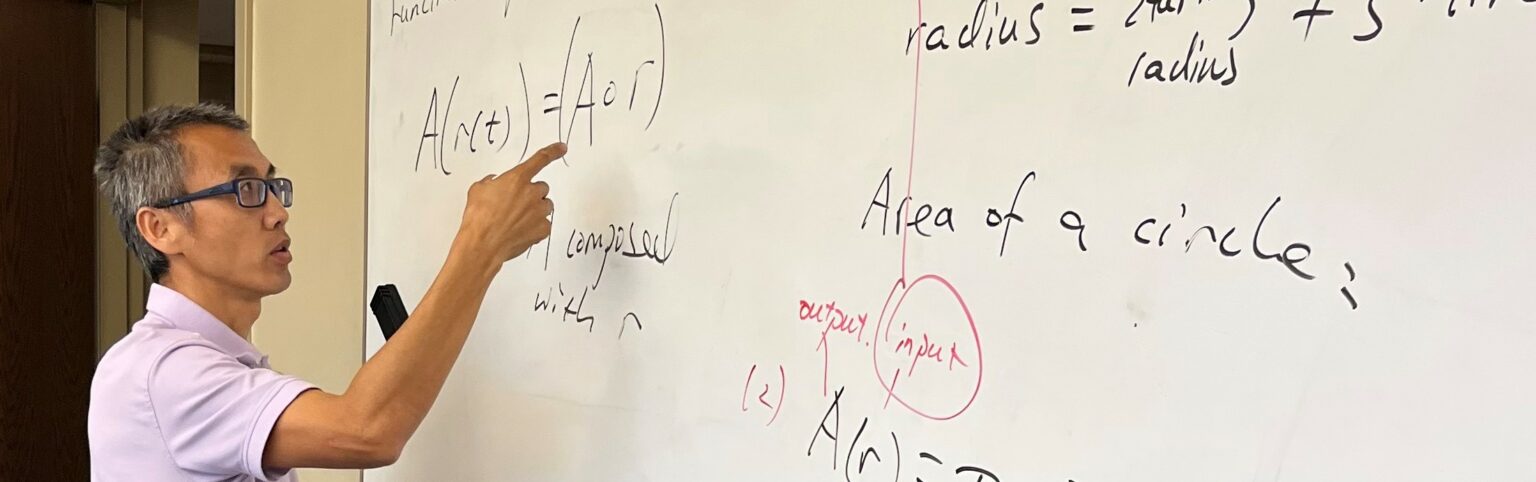 A(r(t)) = (A∘r)
A composed
with r
radius =
radius
Area of a circle:
output.
input
(2)
A(r) =